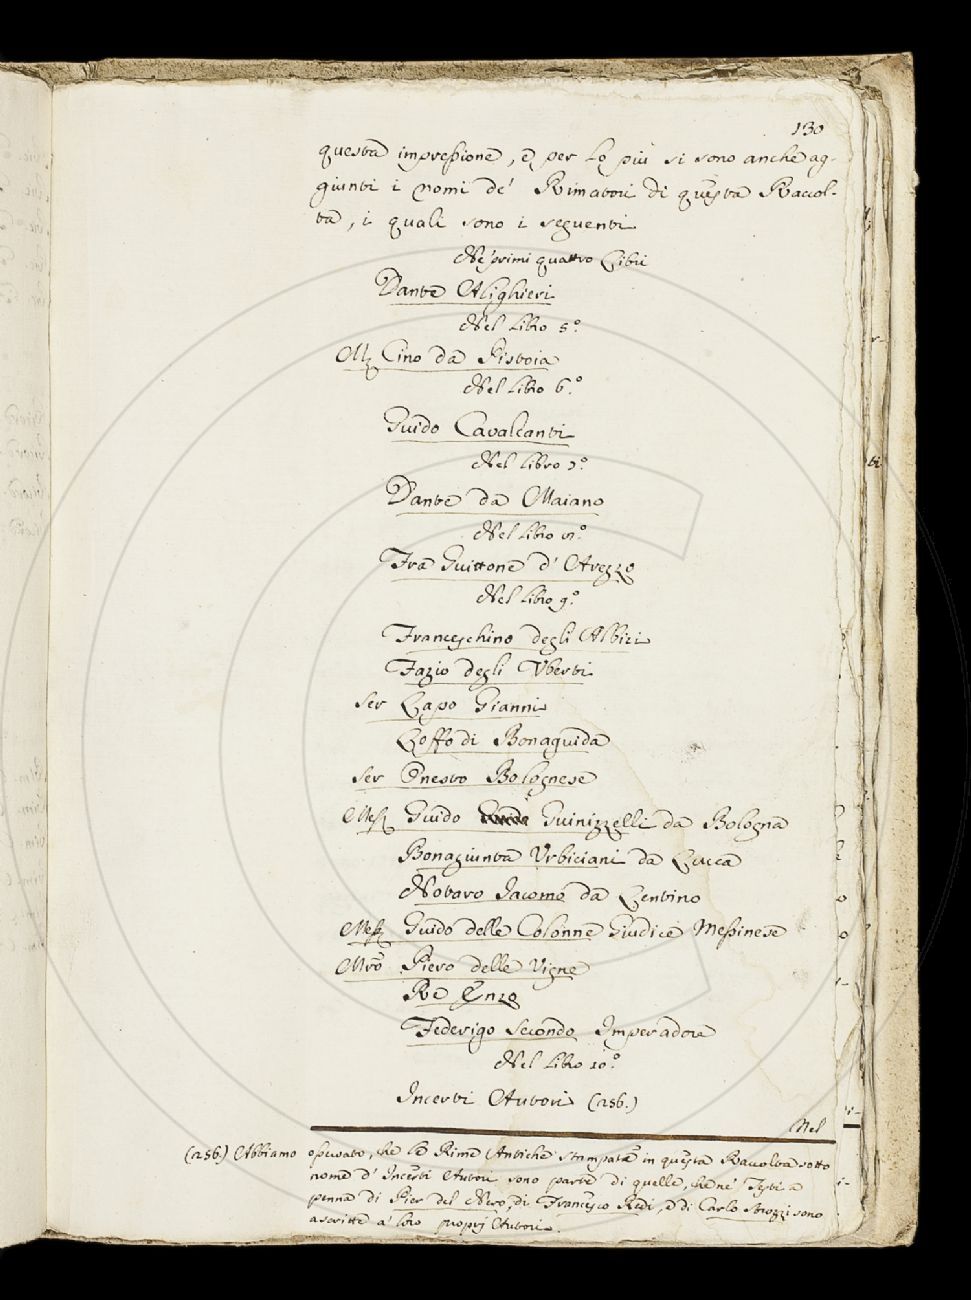 130
questa impressione, e per lo più si sono anche ag-
giunti i nomi de' Rimatori di questa Raccol-
ta, i quali sono i seguenti
Ne' primi quattro Libri
Dante Alighieri
Nel Libro 5.º
M. Cino da Pistoia
Nel Libro 6.º
Guido Cavalcanti
Nel Libro 7.º
Dante da Maiano
Nel Libro 8.º
Fra Guittone d' Arezzo
Nel Libro 9.º
Franceschino degli Albizi
Fazio degli Uberti
Ser Lapo Gianni
Loffo di Bonaguida
Ser Onesto Bolognese
Mess. Guido Guinizzelli da Bologna
Bonagiunta Urbiciani da Lucca
Notaro Jacomo da Lentino
Mess. Guido delle Colonne Giudice Messinese
Mro Piero delle Vigne
Re Enzo
Federigo Secondo Imperadore
Nel Libro 10.º
Incerti Autori (256.)
Nel
(256.) Abbiamo osservato, che le Rime Antiche stampate in questa Raccolta sotto
nome d' Incerti Autori sono parte di quelle, che ne' Testi a
penna di Pier del Nero, di Francesco Redi, e di Carlo Strozzi sono
ascritte a' loro proprj Autori.